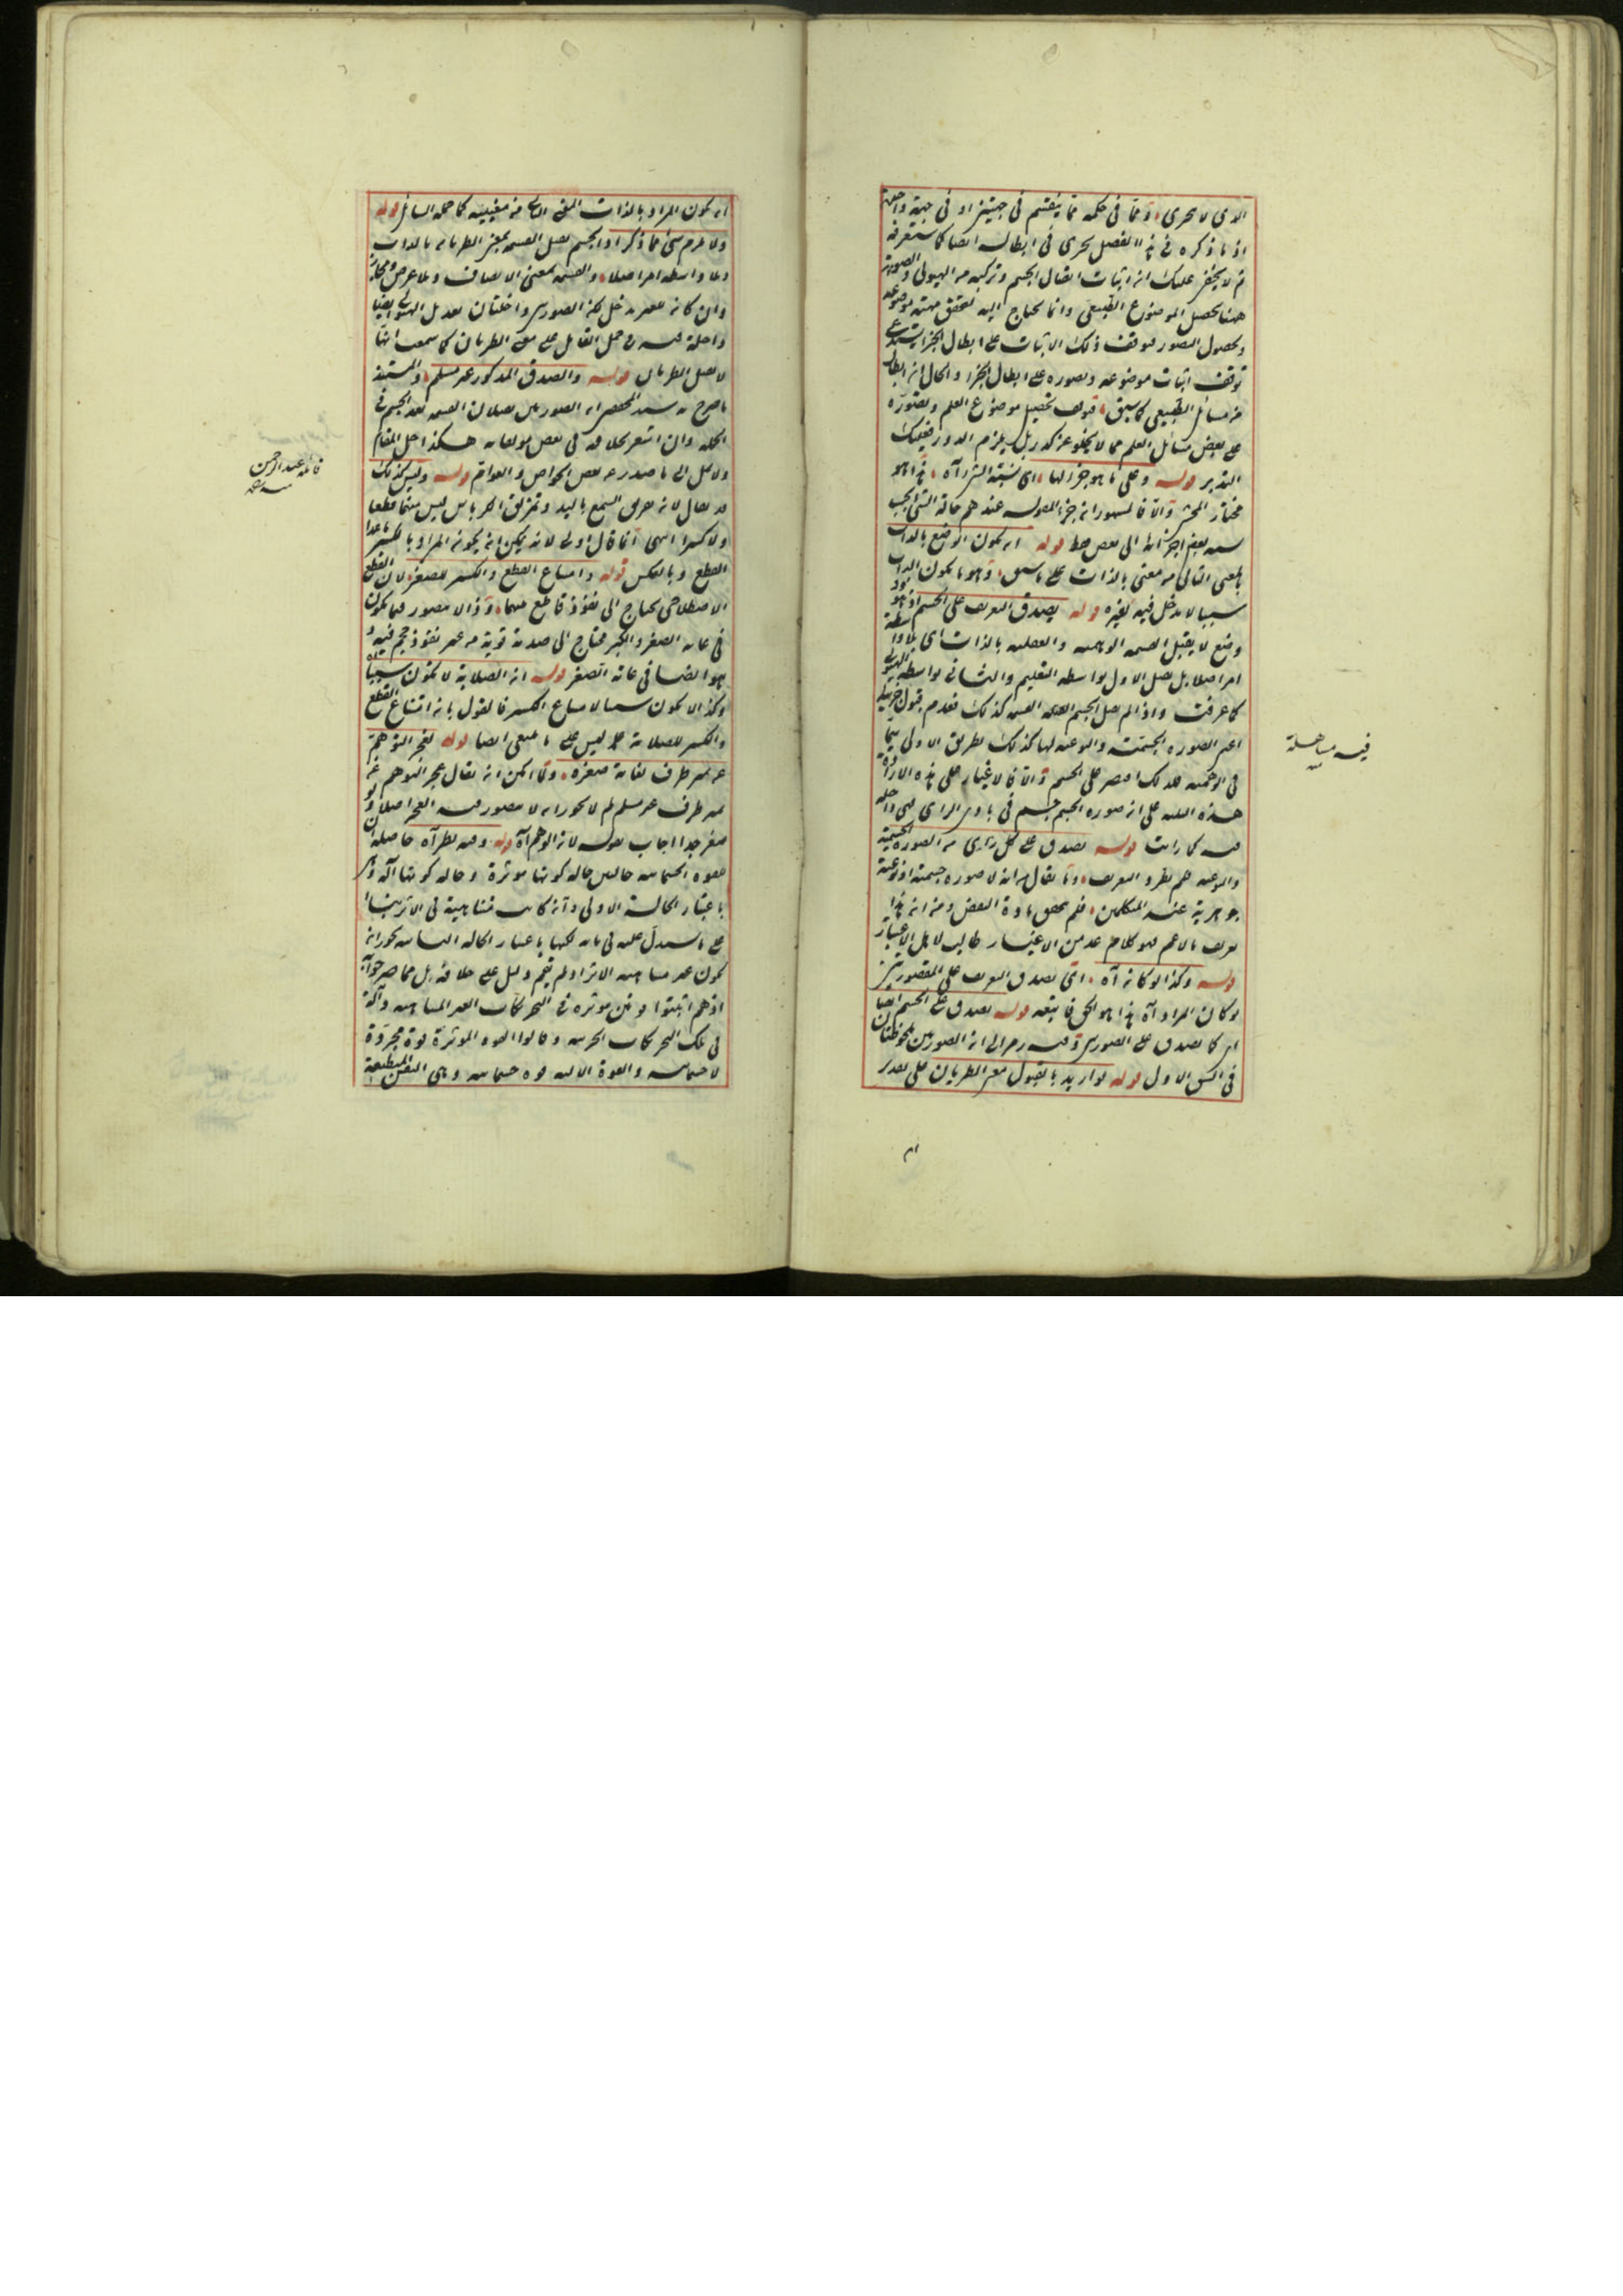 الذي لا يتجزى وتما في حكمه مما ينقسم في جهتين او في جهة واحدة
اذ ما ذكره في هذا الفصل يجري في ابطاله ايضا كما ستعرفه
ثم لا يخفى عليك ان اثبات اتصال الجسم وتركبه من الهيولى والصورة
ههنا يحصل الموضوع الطبيعي وانما يحتاج اليه لتحقق مهية موضوعه
ويحصل التصور فتوقف ذلك الاثبات على ابطال الجزء يستدعي
توقف اثبات موضوعه وتصوره على ابطال الجزء والحال ان ابطاله
من مسائل الطبيعي كما سبق فتوقف تحصيل موضوع العلم وتصوره
على بعض مسائل العلم مما لا يخلو عن كدر بل يلزم الدور فعليك
التدبر قوله وعلى ما هو جزء لها اي نسبة الشيء اه هذا هو
مختار المحشي والا فالمشهور ان جزء المقولة عندهم حالة الشيء بحسب
نسبة بعض اجزائه الى بعض فقط قوله ان يكون الوضع بالذات
بالمعنى الثاني من معنى بالذات على ما سبق وهو ما يكون الذات
سببا لا مدخل فيه لغيره قوله يصدق التعريف على الجسم اذ هو
وضع لا يقبل القسمة الوهمية والفعلية بالذات اي بلا واسطة
امر اصلا بل يقبل الاول بواسطة التعليم والثاني بواسطة الهيولى
كما عرفت واذا لم يقبل الجسم القسمة كذلك فعدم قبول جزئيه
اعني الصورة الجسمية والنوعية لها كذلك بطريق الاولى سيما
في الوهمية فلذلك اقتصر على الجسم والا فلا غبار على هذه الارادة
هذه النسبة على ان صورة الجسم جسم في بادي الراي فهي داخلة
فيه كما رايت قوله يصدق على كل زاوي من الصورة الجسمية
والنوعية هم يطرد التعريف وما يقال من انه لا صورة جسمية او نوعية
جوهرية عند المتكلمين فلم يتحقق مادة النقض ومن ان هذا
تعريف بالاعم فهو كلام عدمن الاغيار طالب لا بل الاعتبار
قوله وكذا لو كان اه اي يصدق التعريف على المقصورين
لو كان المراد اه هذا هو الحق فاتبعه قوله يصدق على الجسم ايضا
اي كما يصدق على الصورتين وفيه رمز الى ان الصورتين ملحوظتان
في الشق الاول قوله لو اريد بالقبول معنى الطريان على تقدير
ان
فيه مساهلة
منه
ان يكون المراد بالذات المعنى الثاني من معنييه كما حمله السائل قوله
ولا يلزم شيء مما ذكر اذ الجسم يقبل القسمة بمعنى الطريان بالذات
وبلا واسطة امر اصلا والقسمة بمعنى الاتصاف وبلا عرض ومجاز
وان كان للغير مدخل لكن الصورتين داخلتان بعد بل الهيولى ايضا
داخلة فيه مع حمل القابل على معنى الطريان كما سمعت انها
لا يقبل الطريان قوله والصدق المذكور غير مسلم والمستند
ما صرح به سند المحققين ان الصورتين يقبلان القسمة بعد الجسم في
الجملة وان اشعر بخلافه في بعض مؤلفاته هكذا حل المقام
ولا تمل الى ما صدر عن بعض الخواص والعوام قوله وليس كذلك
قد يقال لانه تفريق الشمع باليد وتمزيق الكرباس ليس منهما قطعا
ولا كسرا انتهى انما قال اولى لانه يمكن ان يكون المراد بالكسر ما عدا
القطع وبالعكس قوله وامتناع القطع والكسر للصغر لان القطع
الاصطلاحي يحتاج الى نفوذ قاطع فيهما وذا لا يتصور فيما يكون
في غاية الصغر والكسر محتاج الى صدمة قوية من غير نفوذ حجم فيه و
هو ايضا في غاية الصغر قوله ان الصلابة لا تكون سببا
وكذا لا يكون سببا لامتناع الكسر فالقول بان امتناع القطع
والكسر للصلابة ليس على ما ينبغي ايضا قوله لعجز التوهم
عن تمييز طرف لغاية صغره ولما امكن ان يقال عجز التوهم عن
تميز طرف غير مسلم لم لا يجوز ان لا يتصور فيه العجز اصلا ولو
صغر جدا اجاب بقوله لان الوهم اه قوله وفيه نظر اه حاصله ان
للقوة الجسمانية حالين حالة كونها مؤثرة وحالة كونها آلة وذكر
باعتبار الحالة الاولى وانه كانت متناهية في الاثر بناء
على ما سيدل عليه في بابه لكنها باعتبار الحالة الثانية يجوز ان
يكون غير متناهية الاثر اذ لم يقم دليل على خلافه بل مما صرحوا به
اذ هم اثبتوا قوتين مؤثرة في التحريكات الغير المتناهية وآلة
في تلك التحريكات الجزئية وقالوا القوة المؤثرة قوة مجردة
لا جسمانية والقوة الآلية قوة جسمانية وهي النفس المنطبعة
قائله عبد الرحمن